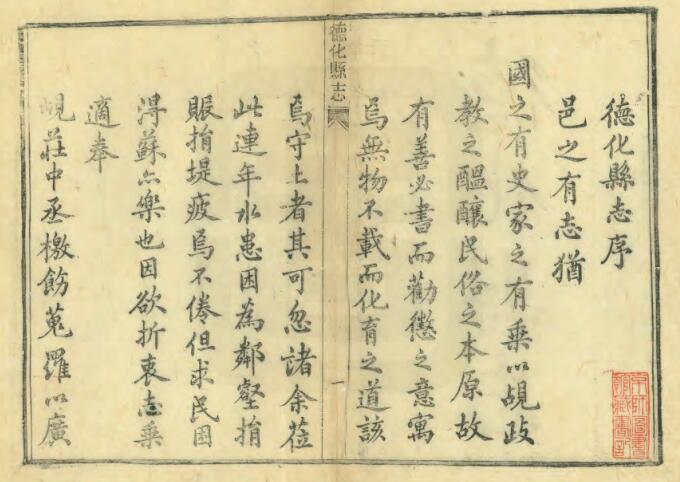 德化縣志序
邑之有志猶
國之有史家之有乘以覘政
教之醞釀民俗之本原故
有善必書而勸懲之意寓
焉無物不載而化育之道該
德化縣志
一
焉守土者其可忽諸余莅
此連年水患因為鄰壑捐
賑捐堤疲焉不倦但求民困
得蘇亦樂也因欲折衷志乘
適奉
峴莊中丞檄飭蒐羅以廣